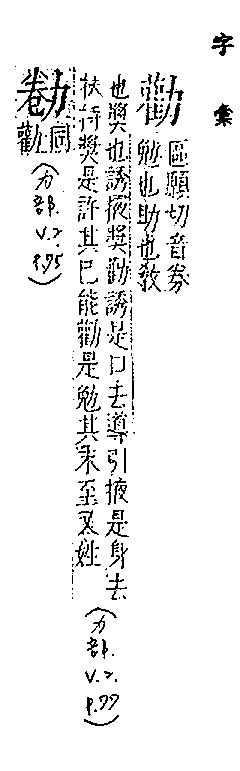 字彙
勸 區願切音券
勉也助也敎
也獎也誘掖獎勸誘是口去導引掖是身去
扶持獎是許其已能勸是勉其未至又姓
(力部.V.2. P.77)
勌 同勸
(力部.V.2. P.75)